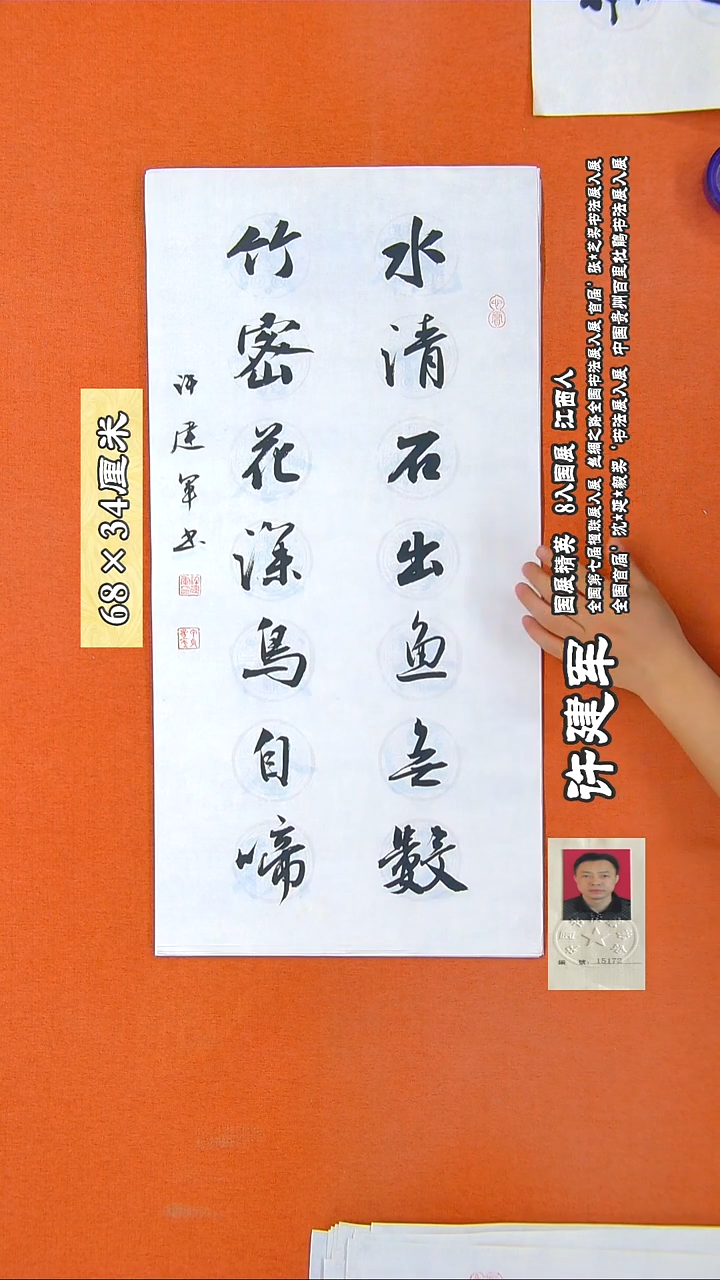 水清石出鱼无數
竹密花深鳥自啼
许建军书
68×34厘米
许建军
国展精英 8入国展 江西人
全国第七届楹联展入展 丝绸之路全国书法展入展 首届‘张★芝奖书法展入展
全国首届‘沈★延★毅奖‘书法展入展 中国贵州百里杜鹃书法展入展
编 号: 15172